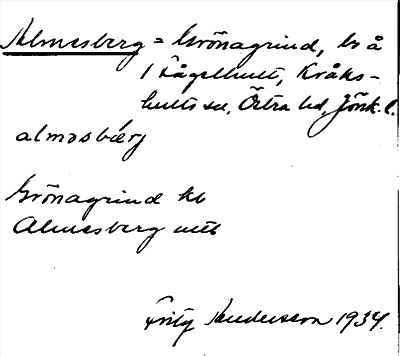 Almesberg = Grönagrind, ls å
1 Fågelhult, Kråks-
hults sn, Östra hd, Jönk. l.
almǝsbærj
Grönagrind kb
Almesberg uttl
Fritz Andersson 1934.